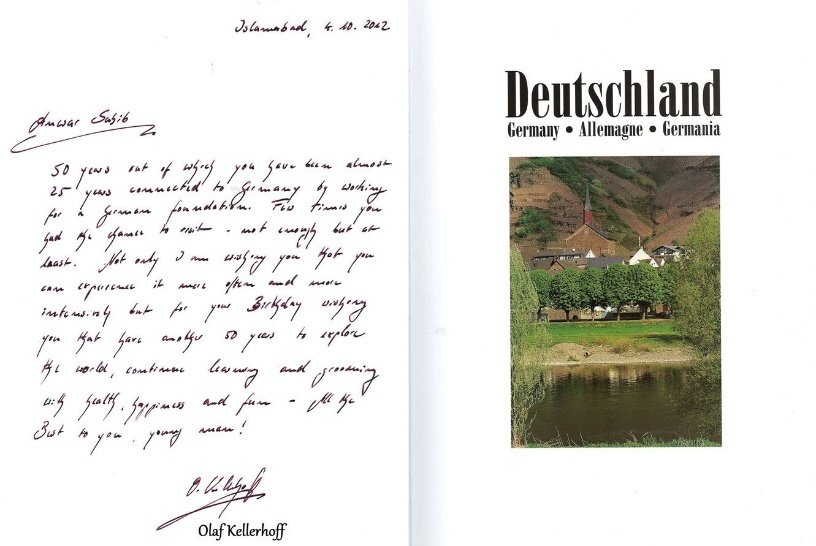 Islamabad, 4.10.2012
Anwar Sahib
50 years out of which you have been almost
25 years connected to Germany by working
for a German foundation. Few times you
had the chance to visit - not enough but at
least. Not only I am wishing you that you
can experience it more often and more
intensively but for your Birthday wishing
you that have another 50 years to explore
the world, continue learning and grooming
with health, happiness and fun - All the
Best to you, young man!
O. Kellerhoff
Olaf Kellerhoff
Deutschland
Germany • Allemagne • Germania